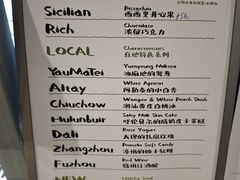 Sicilian Pistachio
西西里开心果
Rich Chocolate
浓郁巧克力
LOCAL Characteristics
在地特色系列
YauMaTei Yunyeung Milktea
油麻地的鸳鸯
Altay White Apricot
阿勒泰的小白杏
Chiuchow Wampee & White Peach Slush
潮汕黄皮白桃冰
Hulunbuir Salty Milk Skin Cake
呼伦贝尔的咸奶皮子蛋糕
Dali Rose Yogurt
大理的乳扇玫瑰
Zhangzhou Pomelo Soft Candy
漳州的柚子软糖
Fuzhou Red Wine
福州红酒酿
NEW